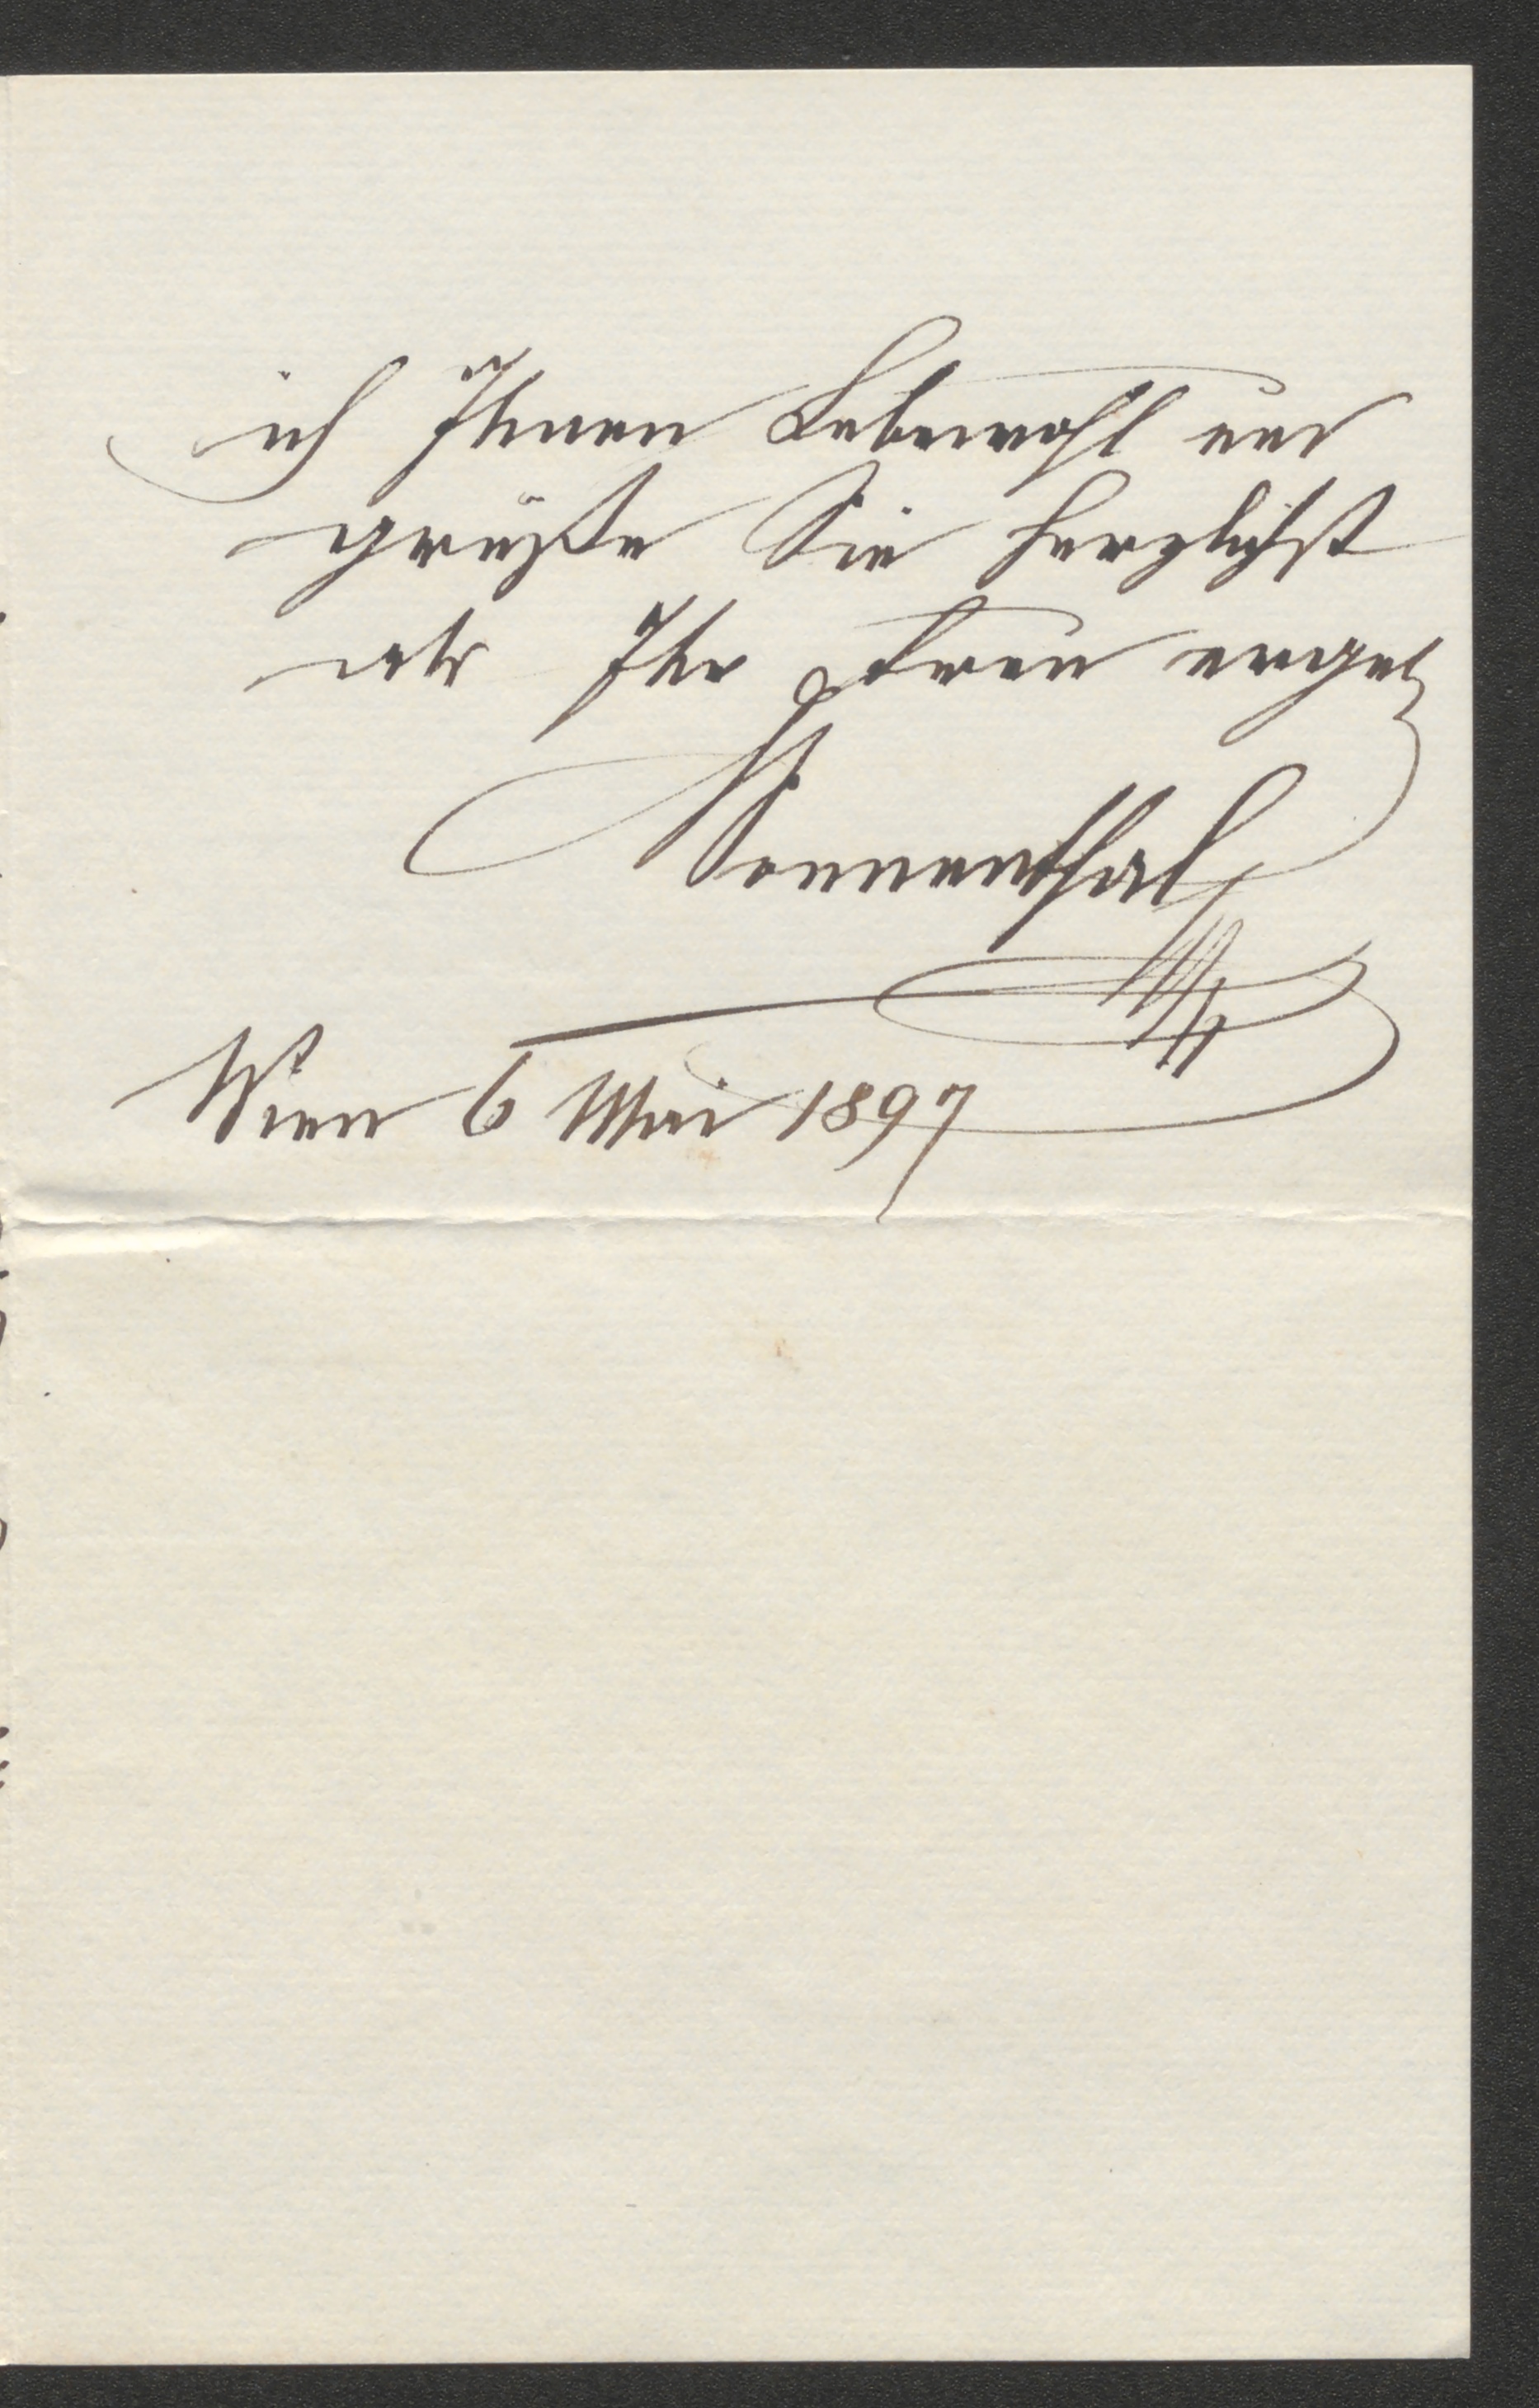 ich Ihnen Lebewohl und
grüße Sie herzlichst
als Ihr treu ergeb
Sonnenthal
Wien 6 Mai 1897